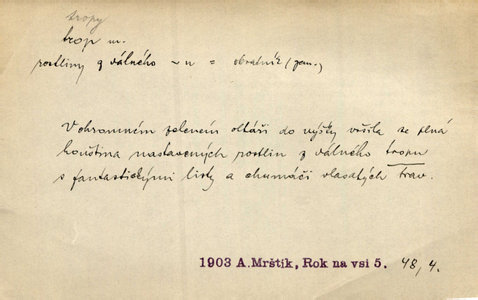 tropy
trop m.
rostliny z válného ~u = obratník (zem.)
V ohromném zeleném oltáři do výšky vršila se plná
houština nastavených rostlin z válného tropu
s fantastickými listy a chumáči vlasatých trav.
1903 A. Mrštík, Rok na vsi 5. 48, 4.